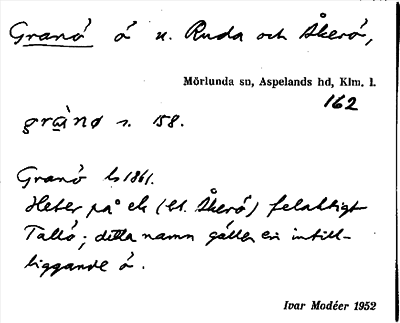 Granö ö n. Ruda och Åkerö,
Mörlunda sn, Aspelands hd, Klm. l.
162
grànø s. 158.
Granö ls 1861.
Heter på ek (bl. Åkerö) felaktigt
Tallö; detta namn gäller en intill-
liggande ö.
Ivar Modéer 1952